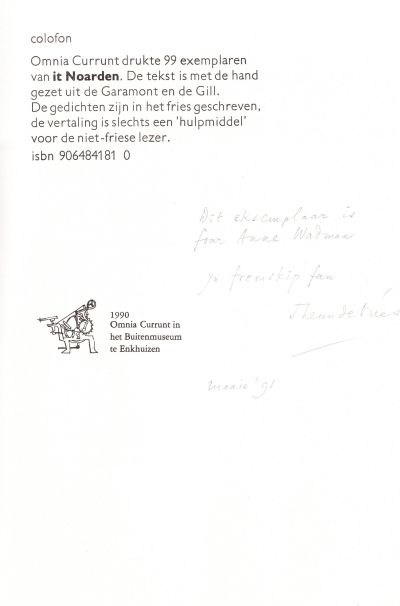 colofon
Omnia Currunt drukte 99 exemplaren
van it Noarden. De tekst is met de hand
gezet uit de Garamont en de Gill.
De gedichten zijn in het fries geschreven,
de vertaling is slechts een 'hulpmiddel'
voor de niet-friese lezer.
isbn 906484181 0
Dit eksemplaar is
foar Anne Wadman
yn freonskip fan
Theun de Vries
maaie '91
1990
Omnia Currunt in
het Buitenmuseum
te Enkhuizen